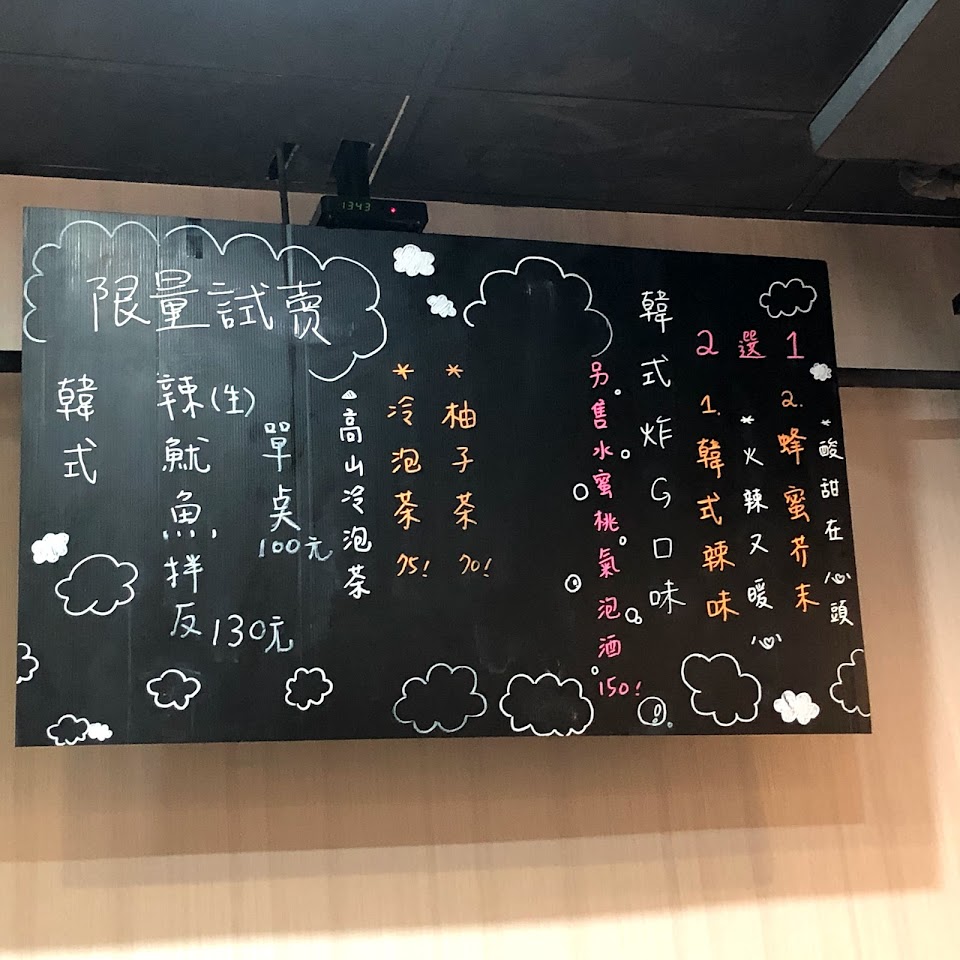 1343
韓式炸G口味
2選1
1.韓式辣味
*火辣又暖心
2.蜂蜜芥末
*酸甜在心頭
另售水蜜桃氣泡酒150!
*柚子茶70!
*冷泡茶75!
△高山冷泡茶
限量試賣
韓式
辣(生)魷魚,拌反130元
單点100元